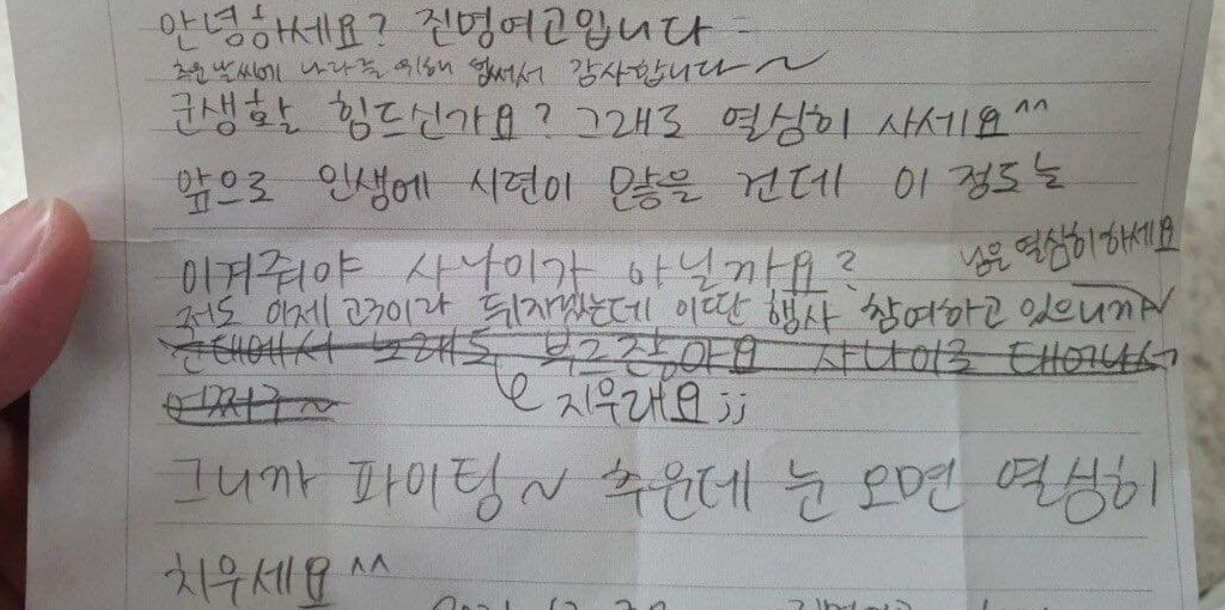 안녕하세요? 진명여고입니다
추운 날씨에 나라를 위해 힘써서 감사합니다~
군생활 힘드신가요? 그래도 열심히 사세요^^
앞으로 인생에 시련이 많을 건데 이 정도는
이겨줘야 사나이가 아닐까요?
저도 이제 고3이라 뒤지겠는데 이딴 행사 참여하고 있으니까
님은 열심히 하세요
군대에서 노래도 부르잖아요 사나이로 태어나서
어쩌구~
지우래요;;
그니까 파이팅~ 추운데 눈 오면 열심히
치우세요^^